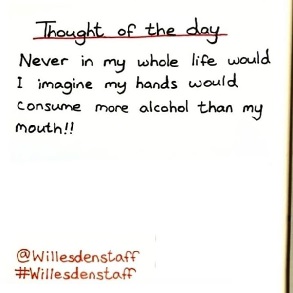 Thought of the day
Never in my whole life would
I imagine my hands would
consume more alcohol than my
mouth!!
@Willesdenstaff
#Willesdenstaff